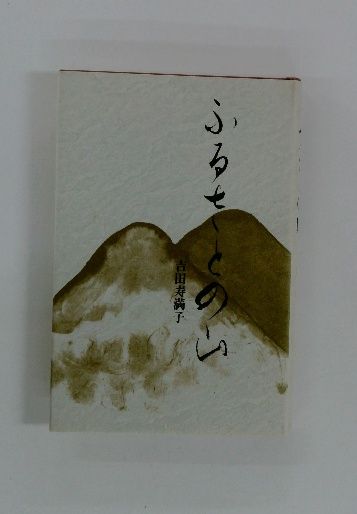 ふるさとの山
吉田寿満子